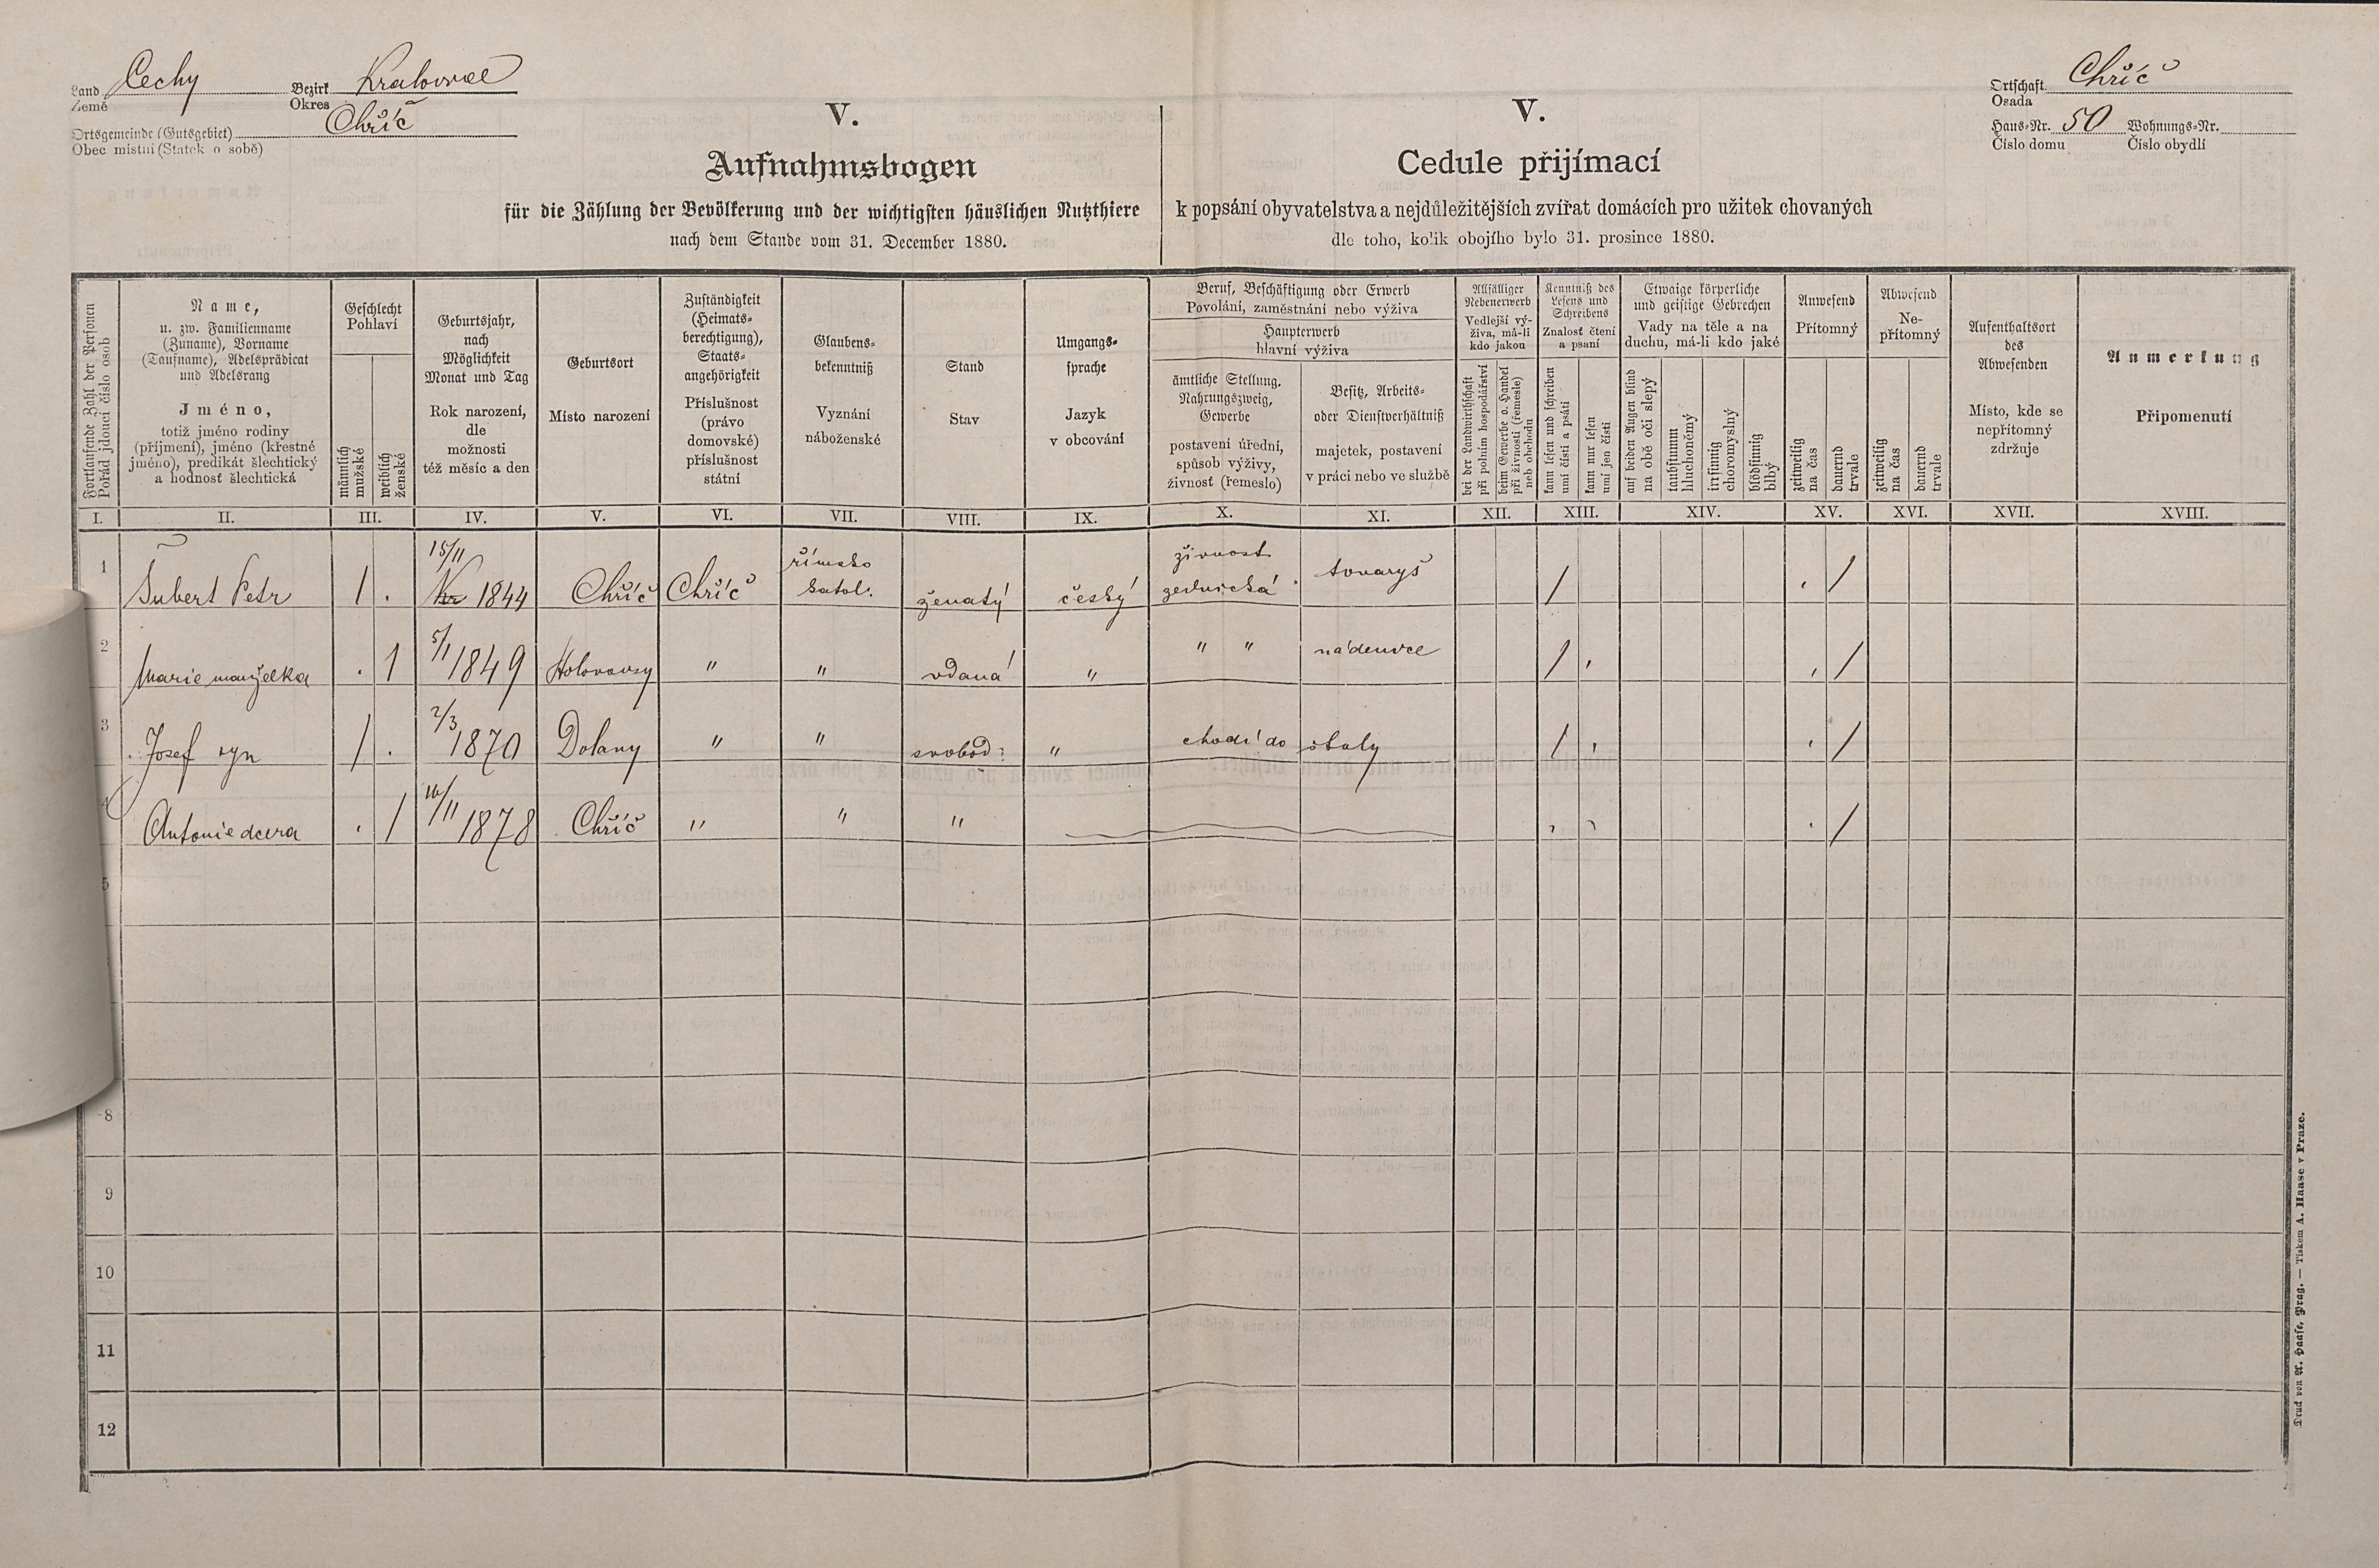 Land Čechy Bezirk Kralovice
Země Okres
Ortsgemeinde (Gutsgebiet) Chříč
Obec místní (Statek o sobě)
V.
Aufnahmsbogen
für die Zählung der Bevölkerung und der wichtigsten häuslichen Nutzthiere
nach dem Stande vom 31. December 1880.
V.
Cedule přijímací
k popsání obyvatelstva a nejdůležitějších zvířat domácích pro užitek chovaných
dle toho, kolik obojího bylo 31. prosince 1880.
Ortschaft Chříč
Osada
Haus-Nr. 50 Wohnungs-Nr.
Číslo domu Číslo obydlí
Fortlaufende Zahl der Personen
Pořád jdoucí číslo osob
Name,
u. zw. Familienname
(Zuname), Vorname
(Taufname), Adelsprädicat
und Adelsrang
Jméno,
totiž jméno rodiny
(příjmení), jméno (křestné
jméno), predikát šlechtický
a hodnosť šlechtická
Geschlecht
Pohlaví
männlich
mužské
weiblich
ženské
Geburtsjahr,
nach
Möglichkeit
Monat und Tag
Rok narození,
dle
možnosti
též měsíc a den
Geburtsort
Místo narození
Zuständigkeit
(Heimats-
berechtigung),
Staats-
angehörigkeit
Příslušnost
(právo
domovské)
příslušnost
státní
Glaubens-
bekenntniß
Vyznání
náboženské
Stand
Stav
Umgangs-
sprache
Jazyk
v obcování
Beruf, Beschäftigung oder Erwerb
Povolání, zaměstnání nebo výživa
Haupterwerb
hlavní výživa
ämtliche Stellung,
Nahrungszweig,
Gewerbe
postavení úřední,
spůsob výživy,
živnosť (řemeslo)
Besitz, Arbeits-
oder Dienstverhältniß
majetek, postavení
v práci nebo ve službě
Allfälliger
Nebenerwerb
Vedlejší vý-
živa, má-li
kdo jakou
bei der Landwirthschaft
při polním hospodářství
beim Gewerbe o. Handel
při živnosti (řemesle)
neb obchodu
Kenntniß des
Lesens und
Schreibens
Znalosť čtení
a psaní
kann lesen und schreiben
umí čísti a psáti
kann nur lesen
umí jen čísti
Etwaige körperliche
und geistige Gebrechen
Vady na těle a na
duchu, má-li kdo jaké
auf beiden Augen blind
na obě oči slepý
taubstumm
hluchoněmý
irrsinnig
choromyslný
blödsinnig
blbý
Anwesend
Přítomný
zeitweilig
na čas
dauernd
trvale
Abwesend
Ne-
přítomný
zeitweilig
na čas
dauernd
trvale
Aufenthaltsort
des
Abwesenden
Místo, kde se
nepřítomný
zdržuje
Anmerkung
Připomenutí
I. II. III. IV. V. VI. VII. VIII. IX. X. XI. XII. XIII. XIV. XV. XVI. XVII. XVIII.
1 Šubert Petr 1 . 15/11 1844 Chříč Chříč římsko katol. ženatý český živnost zednická tovaryš / . /
2 Marie manželka . 1 5/1 1849 Holovousy " " vdaná " " " nádenice / , . /
3 Josef syn / . 2/3 1870 Dolany " " svobod: " chodí do školy / , . /
4 Antonie dcera . / 16/11 1878 Chříč " " " , , . /
5
8
9
10
11
12
Druck von A. Haase, Prag. — Tiskem A. Haase v Praze.